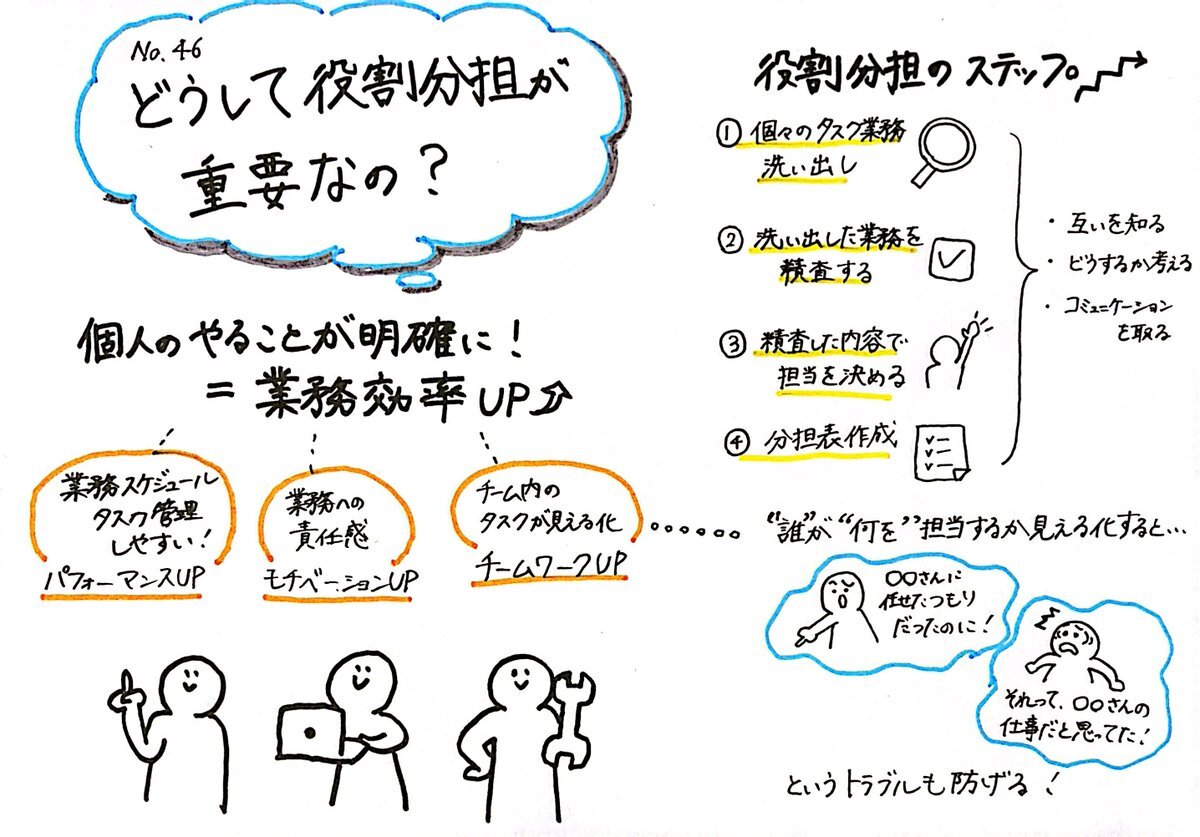 No.46
どうして役割分担が
重要なの?
個人のやることが明確に!
=業務効率UP
業務スケジュール
タスク管理
しやすい!
パフォーマンスUP
業務への
責任感
モチベーションUP
チーム内の
タスクが見える化
チームワークUP
役割分担のステップ。
① 個々のタスク業務
洗い出し
② 洗い出した業務を
精査する
③ 精査した内容で
担当を決める
④ 分担表作成
・互いを知る
・どうするか考える
・コミュニケーション
を取る
"誰"が"何を"担当するか見える化すると…
〇〇さんに
任せたつもり
だったのに!
それって、〇〇さんの
仕事だと思ってた!
というトラブルも防げる!